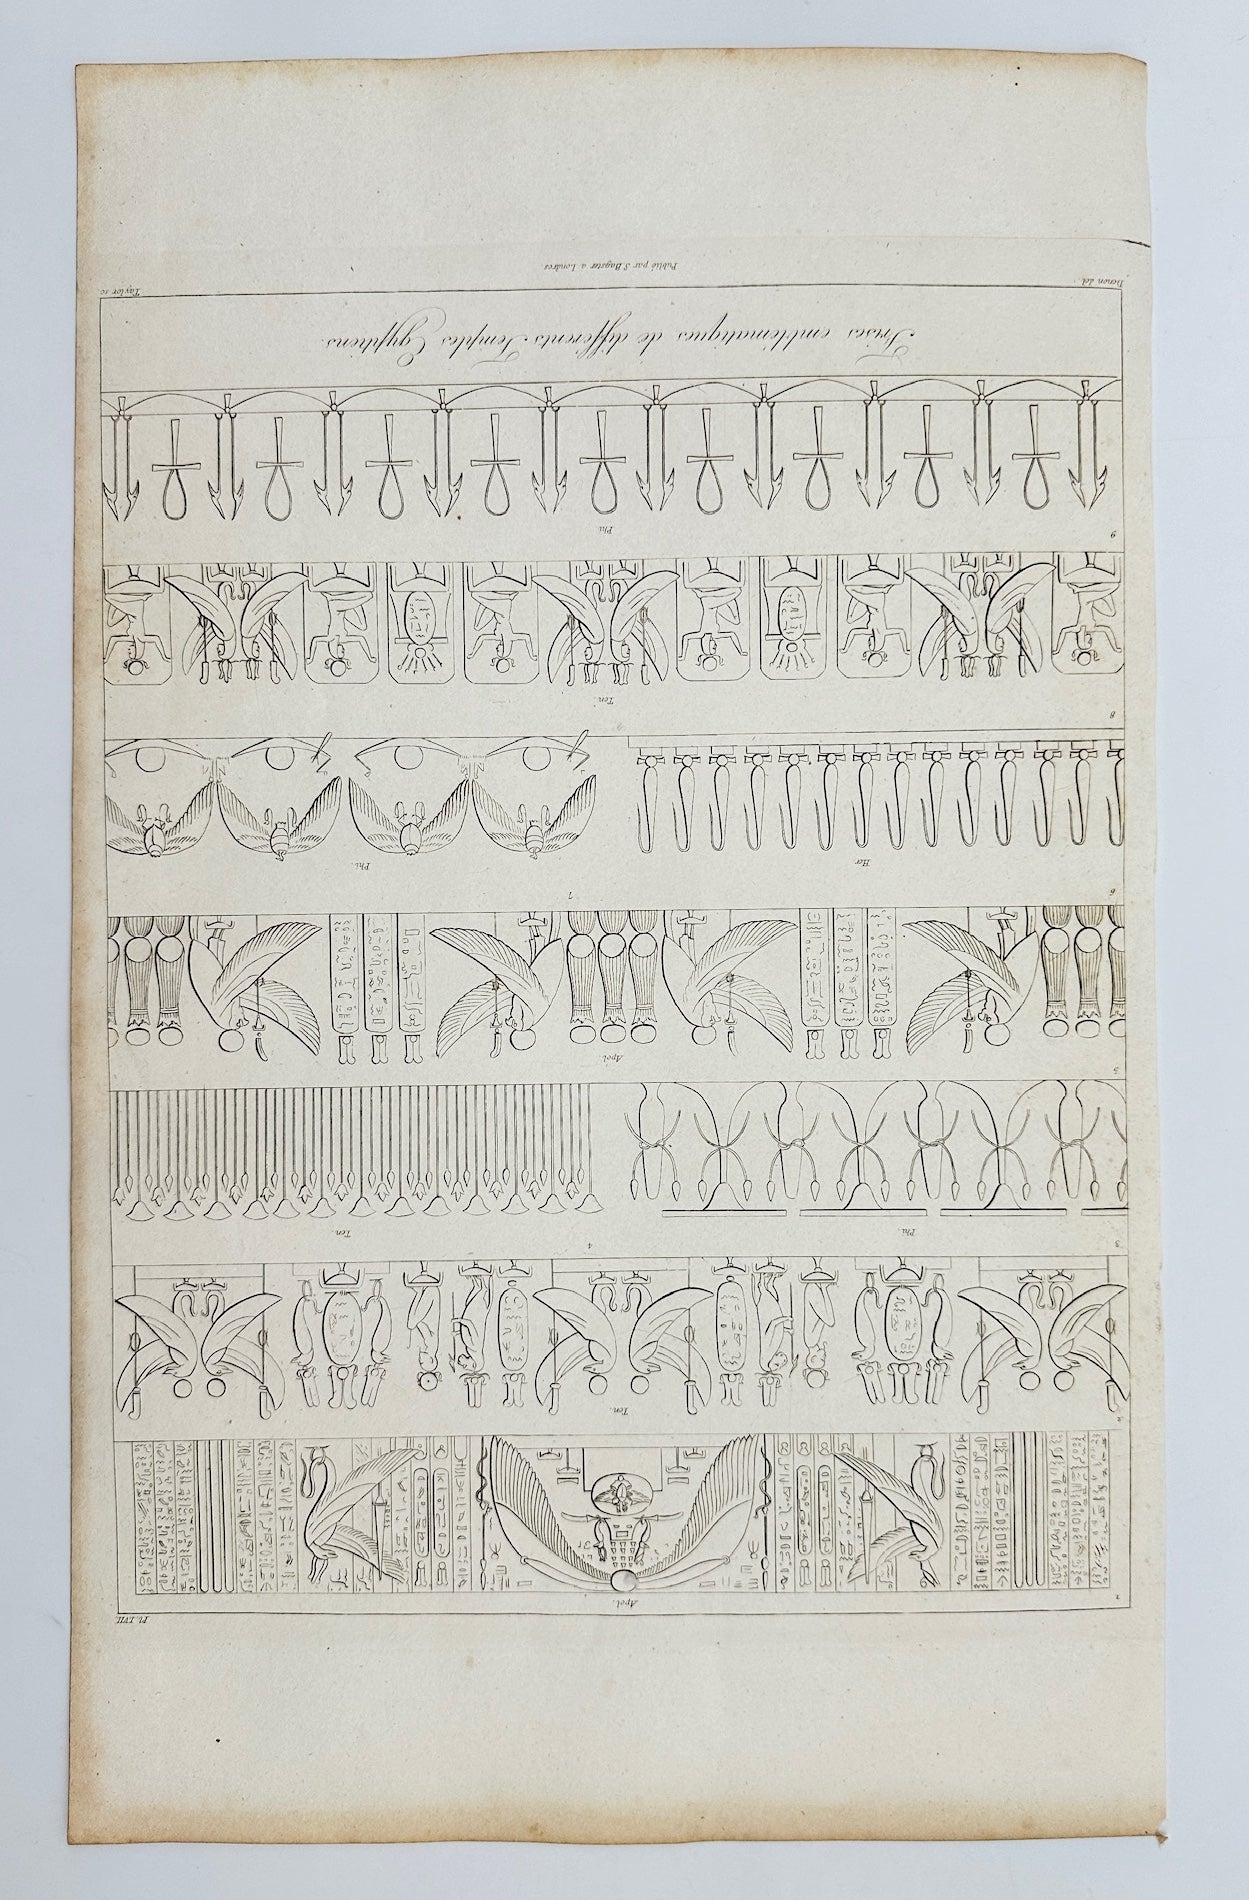 Pl. LVII.
1
Apol.
2
Ten.
3
Phi.
4
Ten.
5
Apol.
6
Her.
7
Phi.
8
Ten.
9
Phi.
Frises emblématiques de différents Temples Egyptiens.
Denon del.
Taylor sc.
Publié par S. Bagster a Londres